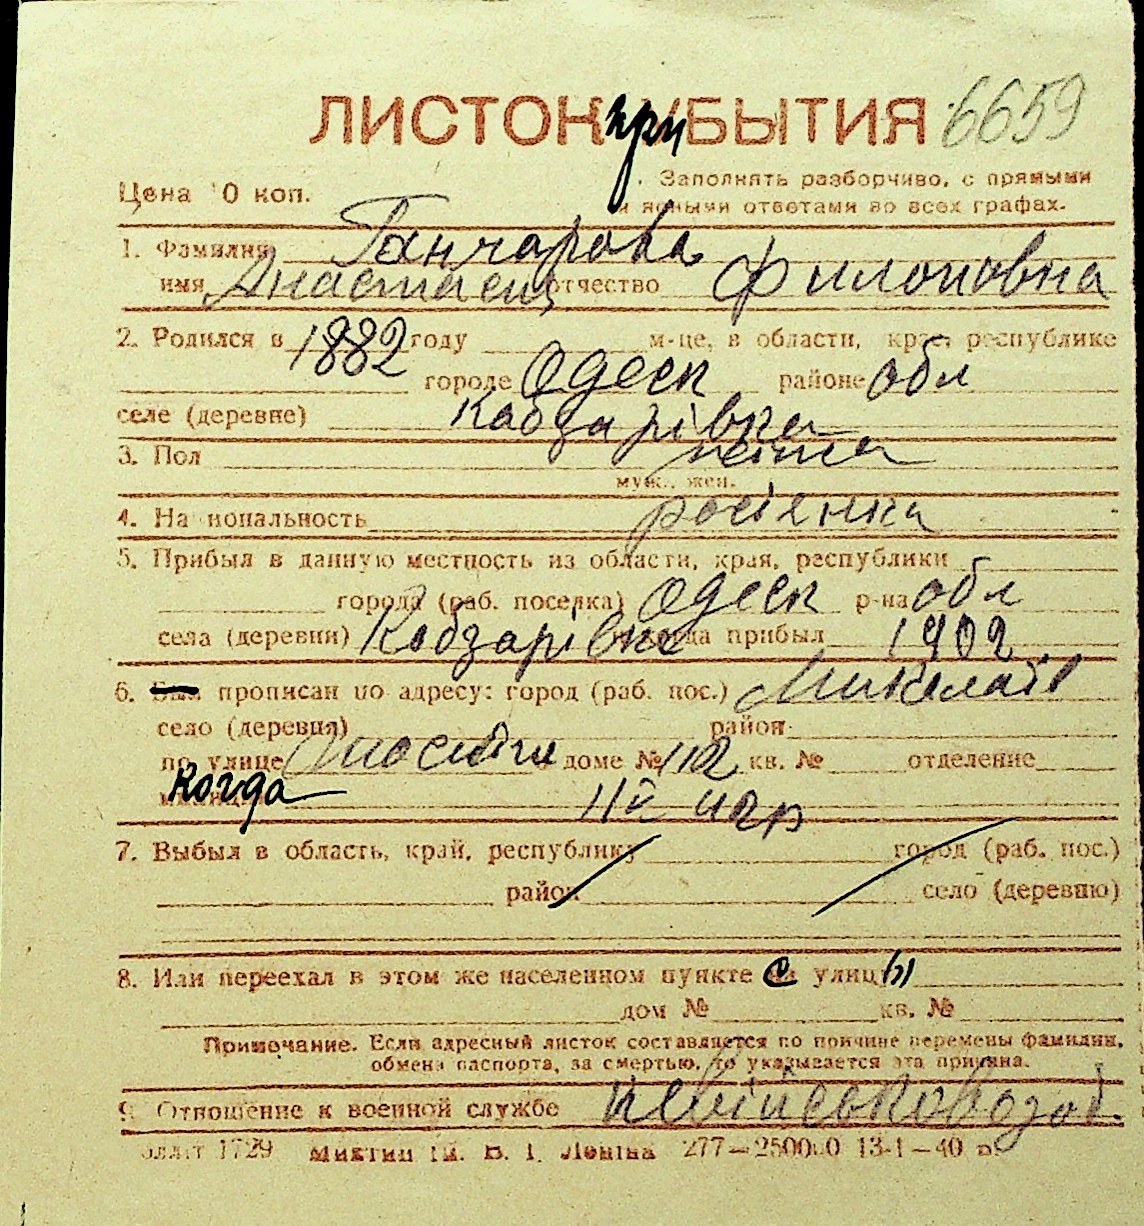 ЛИСТОК при УБЫТИЯ 6659
Цена 10 коп. Заполнять разборчиво, с прямыми
и ясными ответами во всех графах.
1. Фамилия Ганчарова
имя Анастасия отчество Филоповна
2. Родился в 1882 году м-це, в области, крае, республике
городе Одеск районе обл
селе (деревне) Кабзарівка
3. Пол
муж., жен.
4. Национальность росіянка
5. Прибыл в данную местность из области, края, республики
города (раб. поселка) Одеск р-на обл
села (деревни) Кобзарівка когда прибыл 1902
6. Был прописан по адресу: город (раб. пос.) Миколаїв
село (деревня) район
по улице доме № 112 кв. № отделение
Когда
7. Выбыл в область, край, республику город (раб. пос.)
район село (деревню)
8. Или переехал в этом же населенном пункте с улицы
дом № кв. №
Примечание. Если адресный листок составляется по причине перемены фамилии,
обмена паспорта, за смертью, то указывается эта причина.
9. Отношение к военной службе невійськовозоб.
1729 В. І. Леніна 277—250000 13-1—40 в.